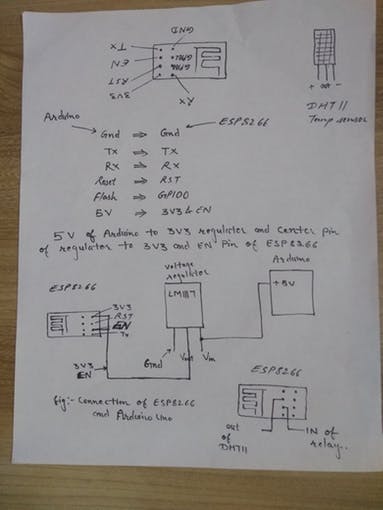 GND
Tx
EN GPIO2
RST GPIO0
3V3
Rx
+ out -
DHT11
Temp sensor
Arduino ESP8266
Gnd ⇒ Gnd
Tx ⇒ Tx
Rx ⇒ Rx
Reset ⇒ RST
Flash ⇒ GPIO0
5V ⇒ 3V3 & EN
5V of Arduino to 3V3 regulator and Center pin
of regulator to 3V3 and EN Pin of ESP8266
voltage
regulator
Arduino
ESP8266
LM1117
+5V
3V3
RST
EN
Tx
3V3
EN
Gnd Vout Vin
ESP8266
fig:- Connection of ESP8266
and Arduino Uno
out
of
DHT11
IN of
relay..